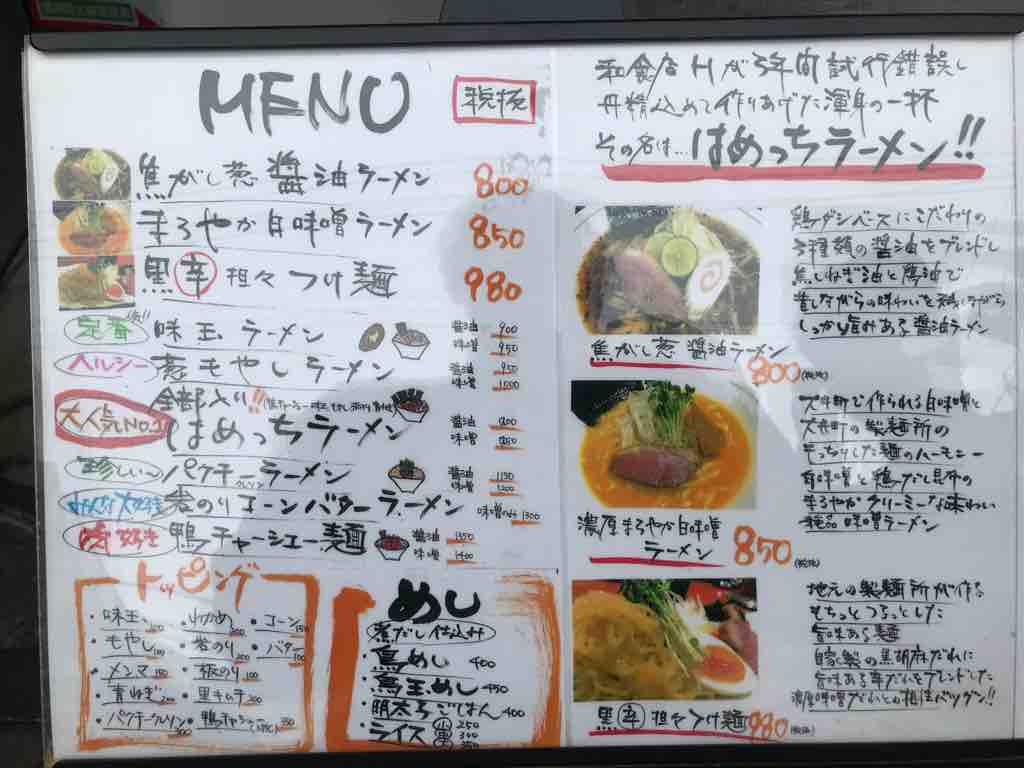 MENU
税抜
焦がし葱醤油ラーメン 800
まろやか白味噌ラーメン 850
黒辛担々つけ麺 980
定番 味玉ラーメン 醤油 900 味噌 950
ヘルシー 葱もやしラーメン 醤油 950 味噌 1000
大人気No.1 全部入り!!
はめっちラーメン 醤油 味噌
珍しい〜 パクチーラーメン 醤油 1150 味噌 1200
岩のりコーンバターラーメン 味噌のみ 1300
肉好き 鴨チャーシュー麺 醤油 1350 味噌 1400
トッピング
・味玉 100 ・わかめ 200 ・コーン 150
・もやし 100 ・岩のり 200 ・バター 100
・メンマ 150 ・板のり 100
・青ねぎ 200 ・黒キムチ 200
・パクチー 300 ・鴨チャーシュー 350
めし
煮だし仕込み
・鳥めし 400
・鳥玉めし 450
・明太子ごはん 400
・ライス 小 250 中 300
和食店Hが3年間試行錯誤し
丹精込めて作りあげた渾身の一杯
その名は…はめっちラーメン!!
鶏ダシベースにこだわりの
3種類の醤油をブレンドし
焦しねぎ油と鴨油で
昔しながらの味わいを残しながら
しっかり旨みある醤油ラーメン
焦がし葱醤油ラーメン 800(税抜)
で作られる白味噌と
大井町の製麺所の
もっちりした麺のハーモニー
白味噌と鶏だし昆布の
まろやかクリーミーな味わい
絶品味噌ラーメン
濃厚まろやか白味噌
ラーメン 850(税抜)
地元の製麺所が作る
もちっとつるっとした
旨味ある麺
自家製の黒胡麻だれに
旨味ある辛だんをブレンドした
濃厚味噌だんとの相性バツグン!!
黒辛担々つけ麺 980(税抜)